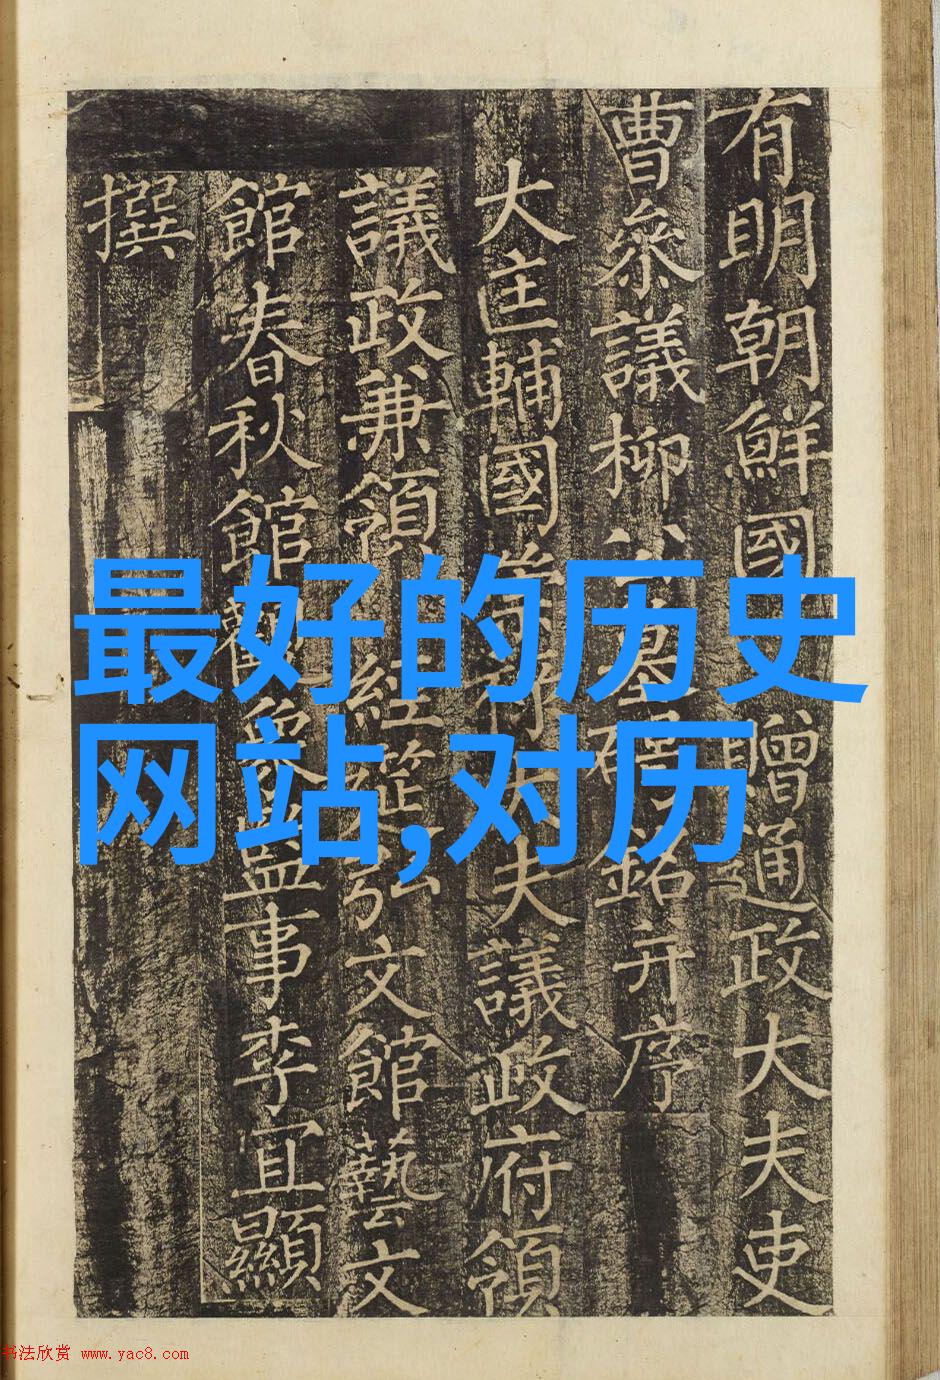 有明朝鮮國贈通政大夫吏
曹叅議柳公墓碑銘并序
大匡輔國崇祿大夫議政府領
議政兼領經筵弘文館藝文
館春秋館觀象監事李宜顯
撰
最好的历史
网站,对历
书法欣赏 www.yac8.com